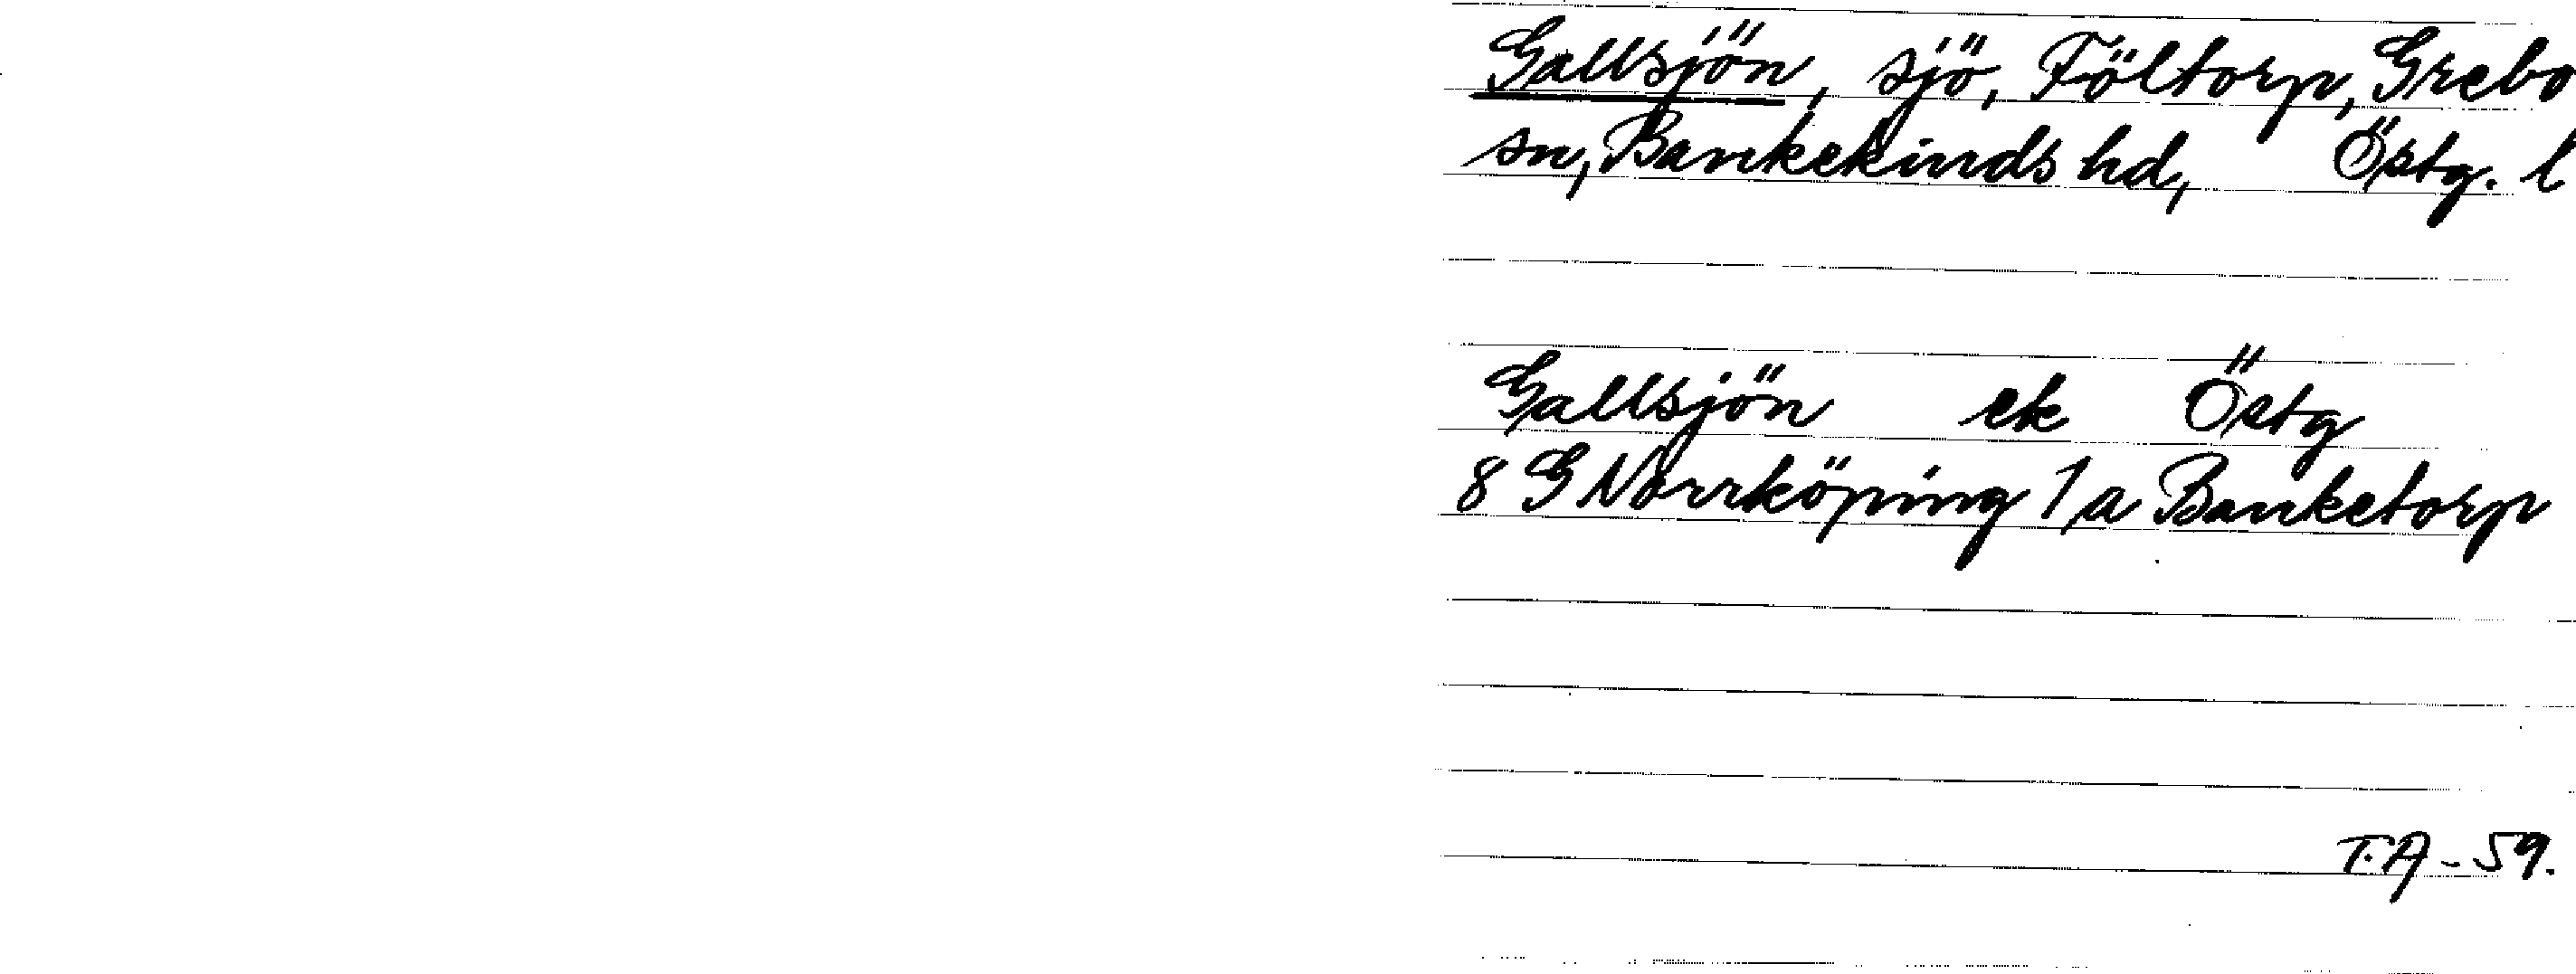 Gallsjön, sjö, Föltorp, Grebo
sn, Bankekinds hd, Östg. l
Gallsjön ek Östg
8 G Norrköping 1 a Banketorp
T.A - 59.